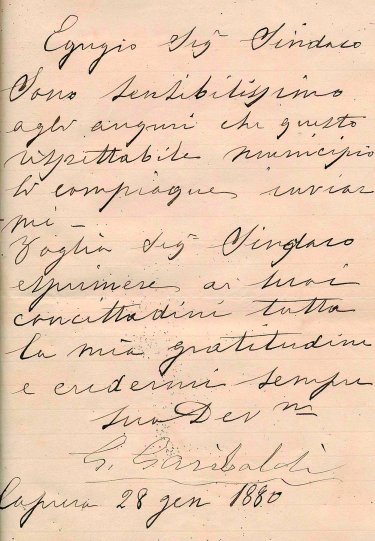 Egregio Sig.r Sindaco
Sono sensibilissimo
agli auguri che questo
rispettabile municipio
si compiaque inviar
mi -
Voglia Sig.r Sindaco
esprimere ai suoi
concittadini tutta
la mia gratitudine
e credermi sempre
suo Dev mo
G. Garibaldi
Caprera 28 gen 1880